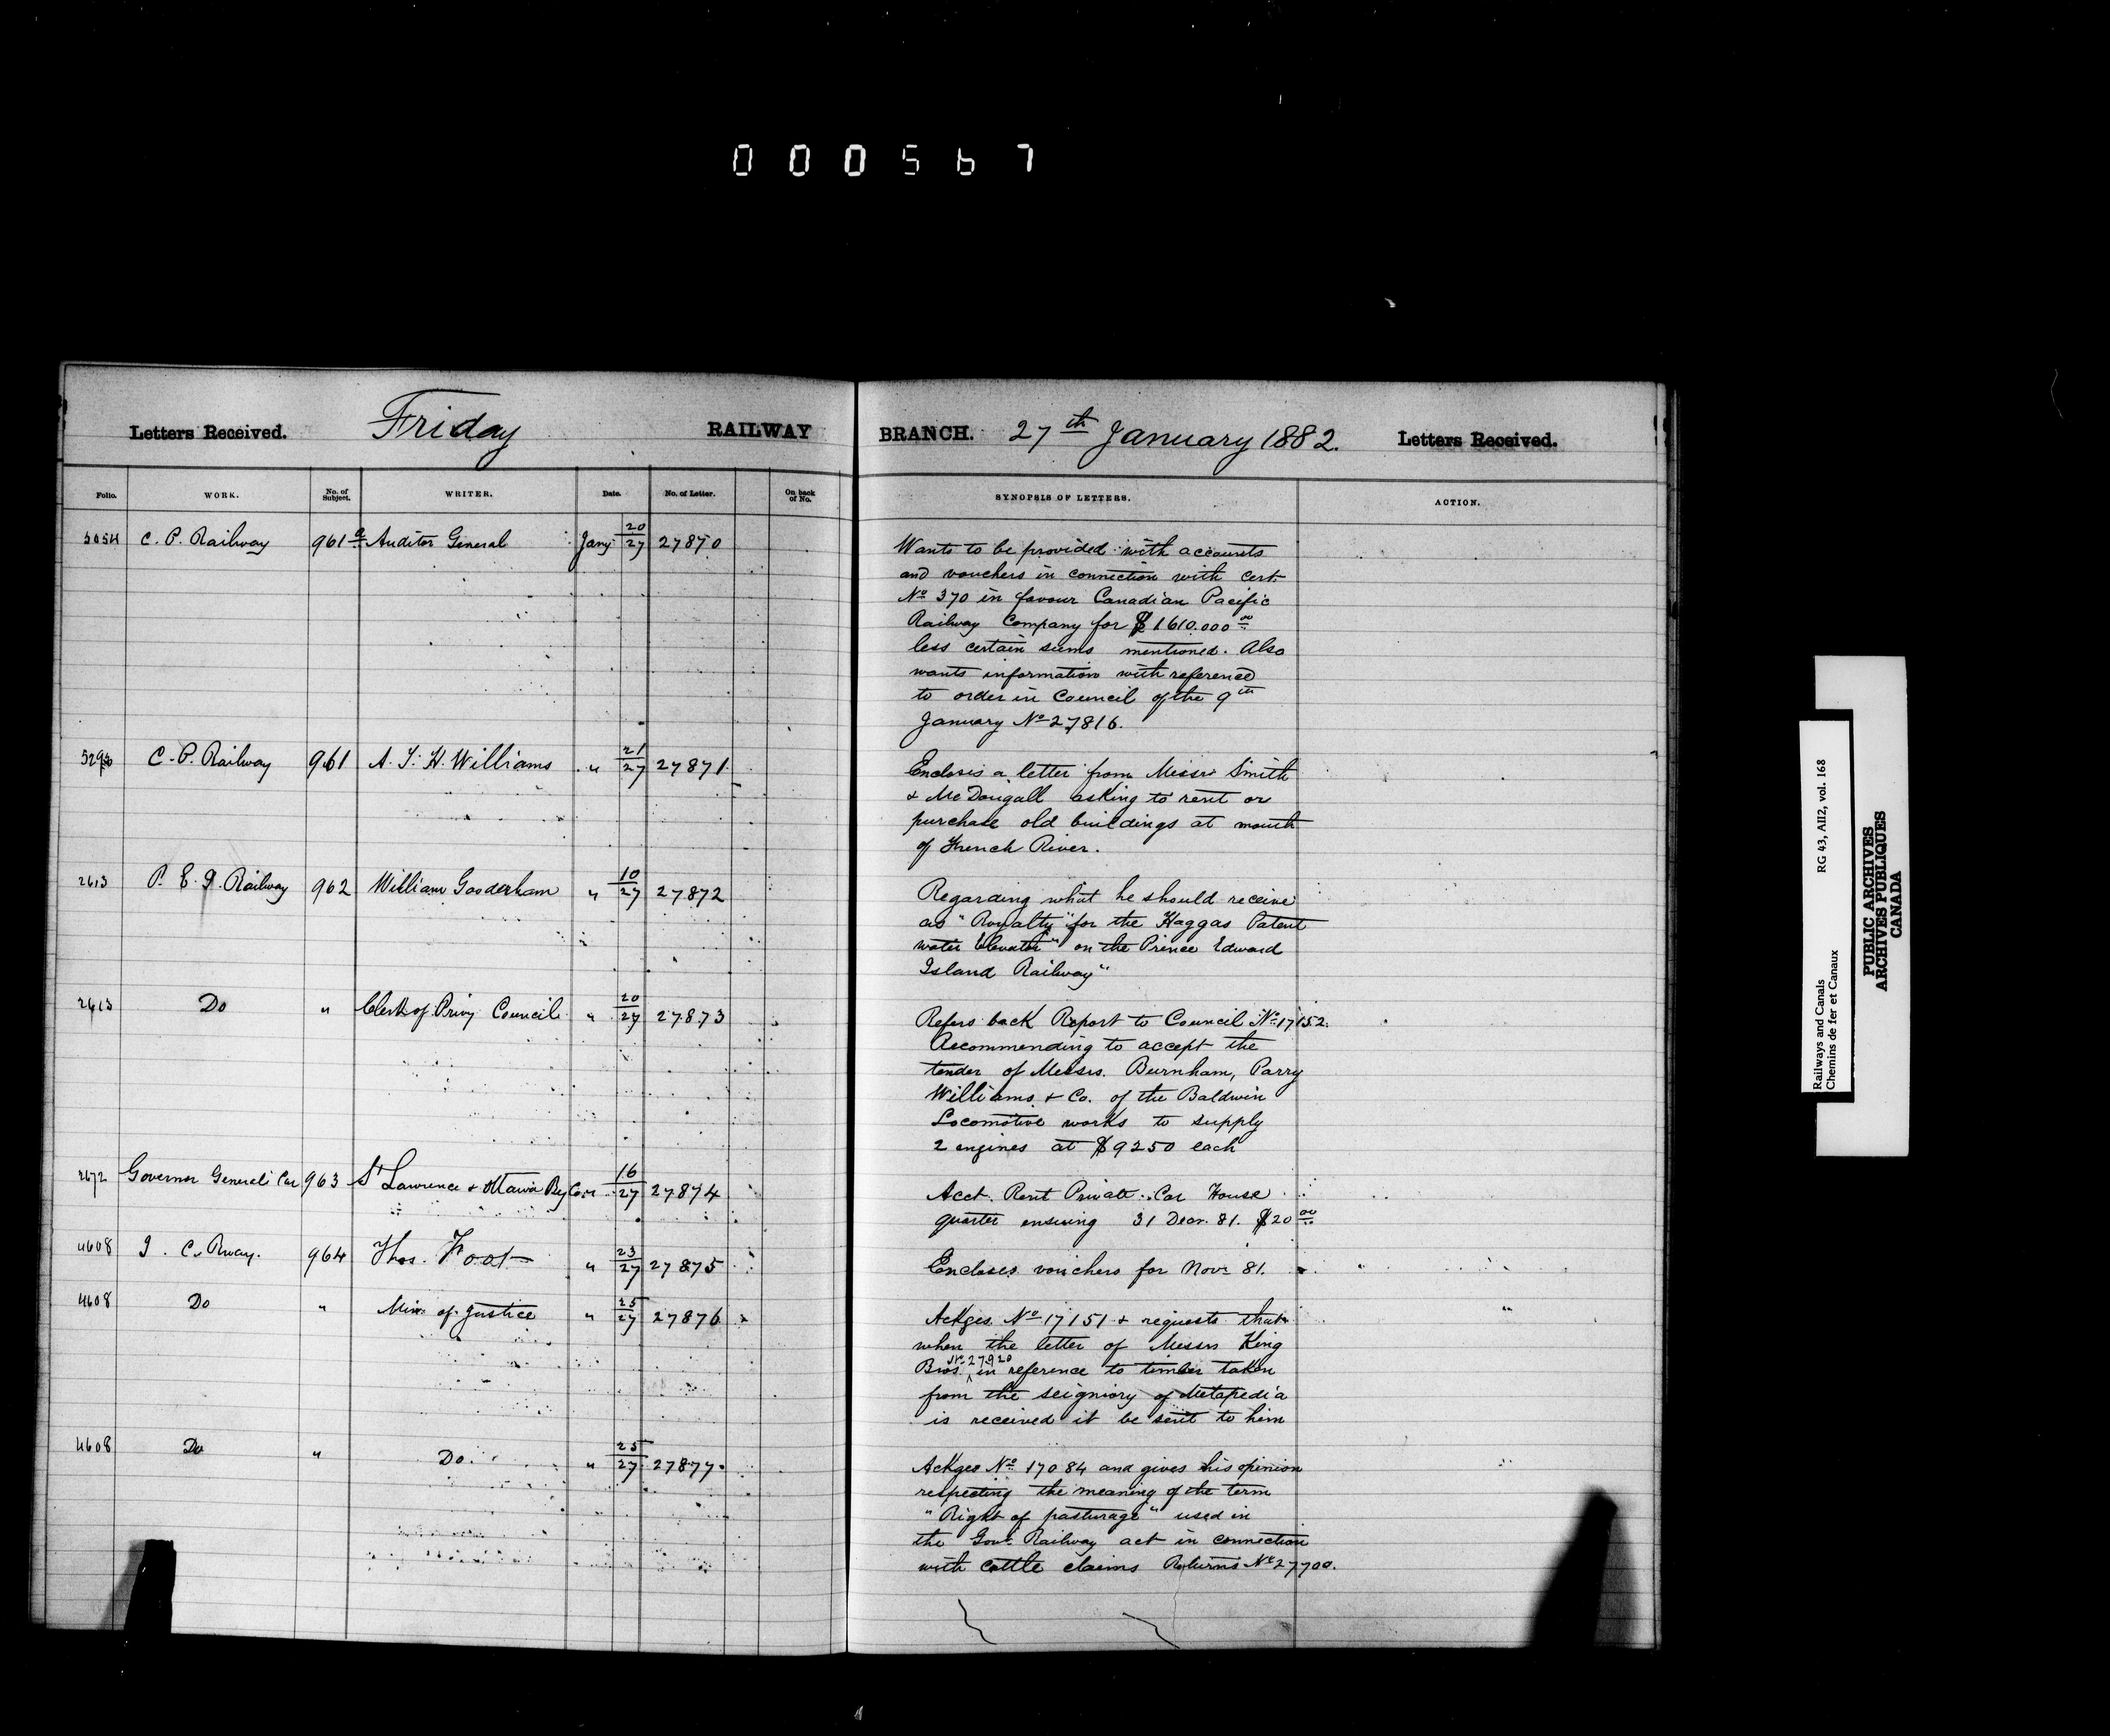 000567
Letters Received. Friday RAILWAY BRANCH. 27th January 1882. Letters Received.
Folio. WORK. No. of Subject. WRITER. Date. No. of Letter. On back of No. SYNOPSIS OF LETTERS. ACTION.
C. P. Railway 961a Auditor General Jany 20/27 27870
Wants to be provided with accounts
and vouchers in connection with cert.
No 370 in favour Canadian Pacific
Railway Company for $1610.000 00
less certain sums mentioned. Also
wants information with reference
to order in Council of the 9th
January No 27816.
C. P. Railway 961 A. T. H. Williams " 21/27 27871
Encloses a letter from Messrs Smith
& McDougall asking to rent or
purchase old buildings at mouth
of French River.
2613 P. E. I. Railway 962 William Gooderham " 10/27 27872
Regarding what he should receive
as "Royalty" for the Haggas Patent
water Elevator" on the Prince Edward
Island Railway"
2613 Do " Clerk of Privy Council " 20/27 27873
Refers back Report to Council No 17152.
Recommending to accept the
tender of Messrs. Burnham, Parry
Williams & Co. of the Baldwin
Locomotive works to supply
2 engines at $9250 each
2672 Governor General's Car 963 St Lawrence & Ottawa Ry Com 16/27 27874
Acct. Rent Private Car House
quarter ensuing 31 Decr. 81. $20 00
4608 I. C. Rway. 964 Thos. Foot " 23/27 27875
Encloses vouchers for Novr 81.
4608 Do " Min. of Justice " 25/27 27876
Ackges. No 17151 & requests that
when the letter of Messrs King
No 27920
Bros. in reference to timber taken
from the seigniory of Metapedia
is received it be sent to him
4608 Do " Do. " 25/27 27877
Ackges No 17084 and gives his opinion
respecting the meaning of the term
"Right of pasturage" used in
the Govt. Railway act in connection
with cattle claims Returns No 27700.
Railways and Canals RG 43, AII2, vol. 168
Chemins de fer et Canaux
PUBLIC ARCHIVES
ARCHIVES PUBLIQUES
CANADA